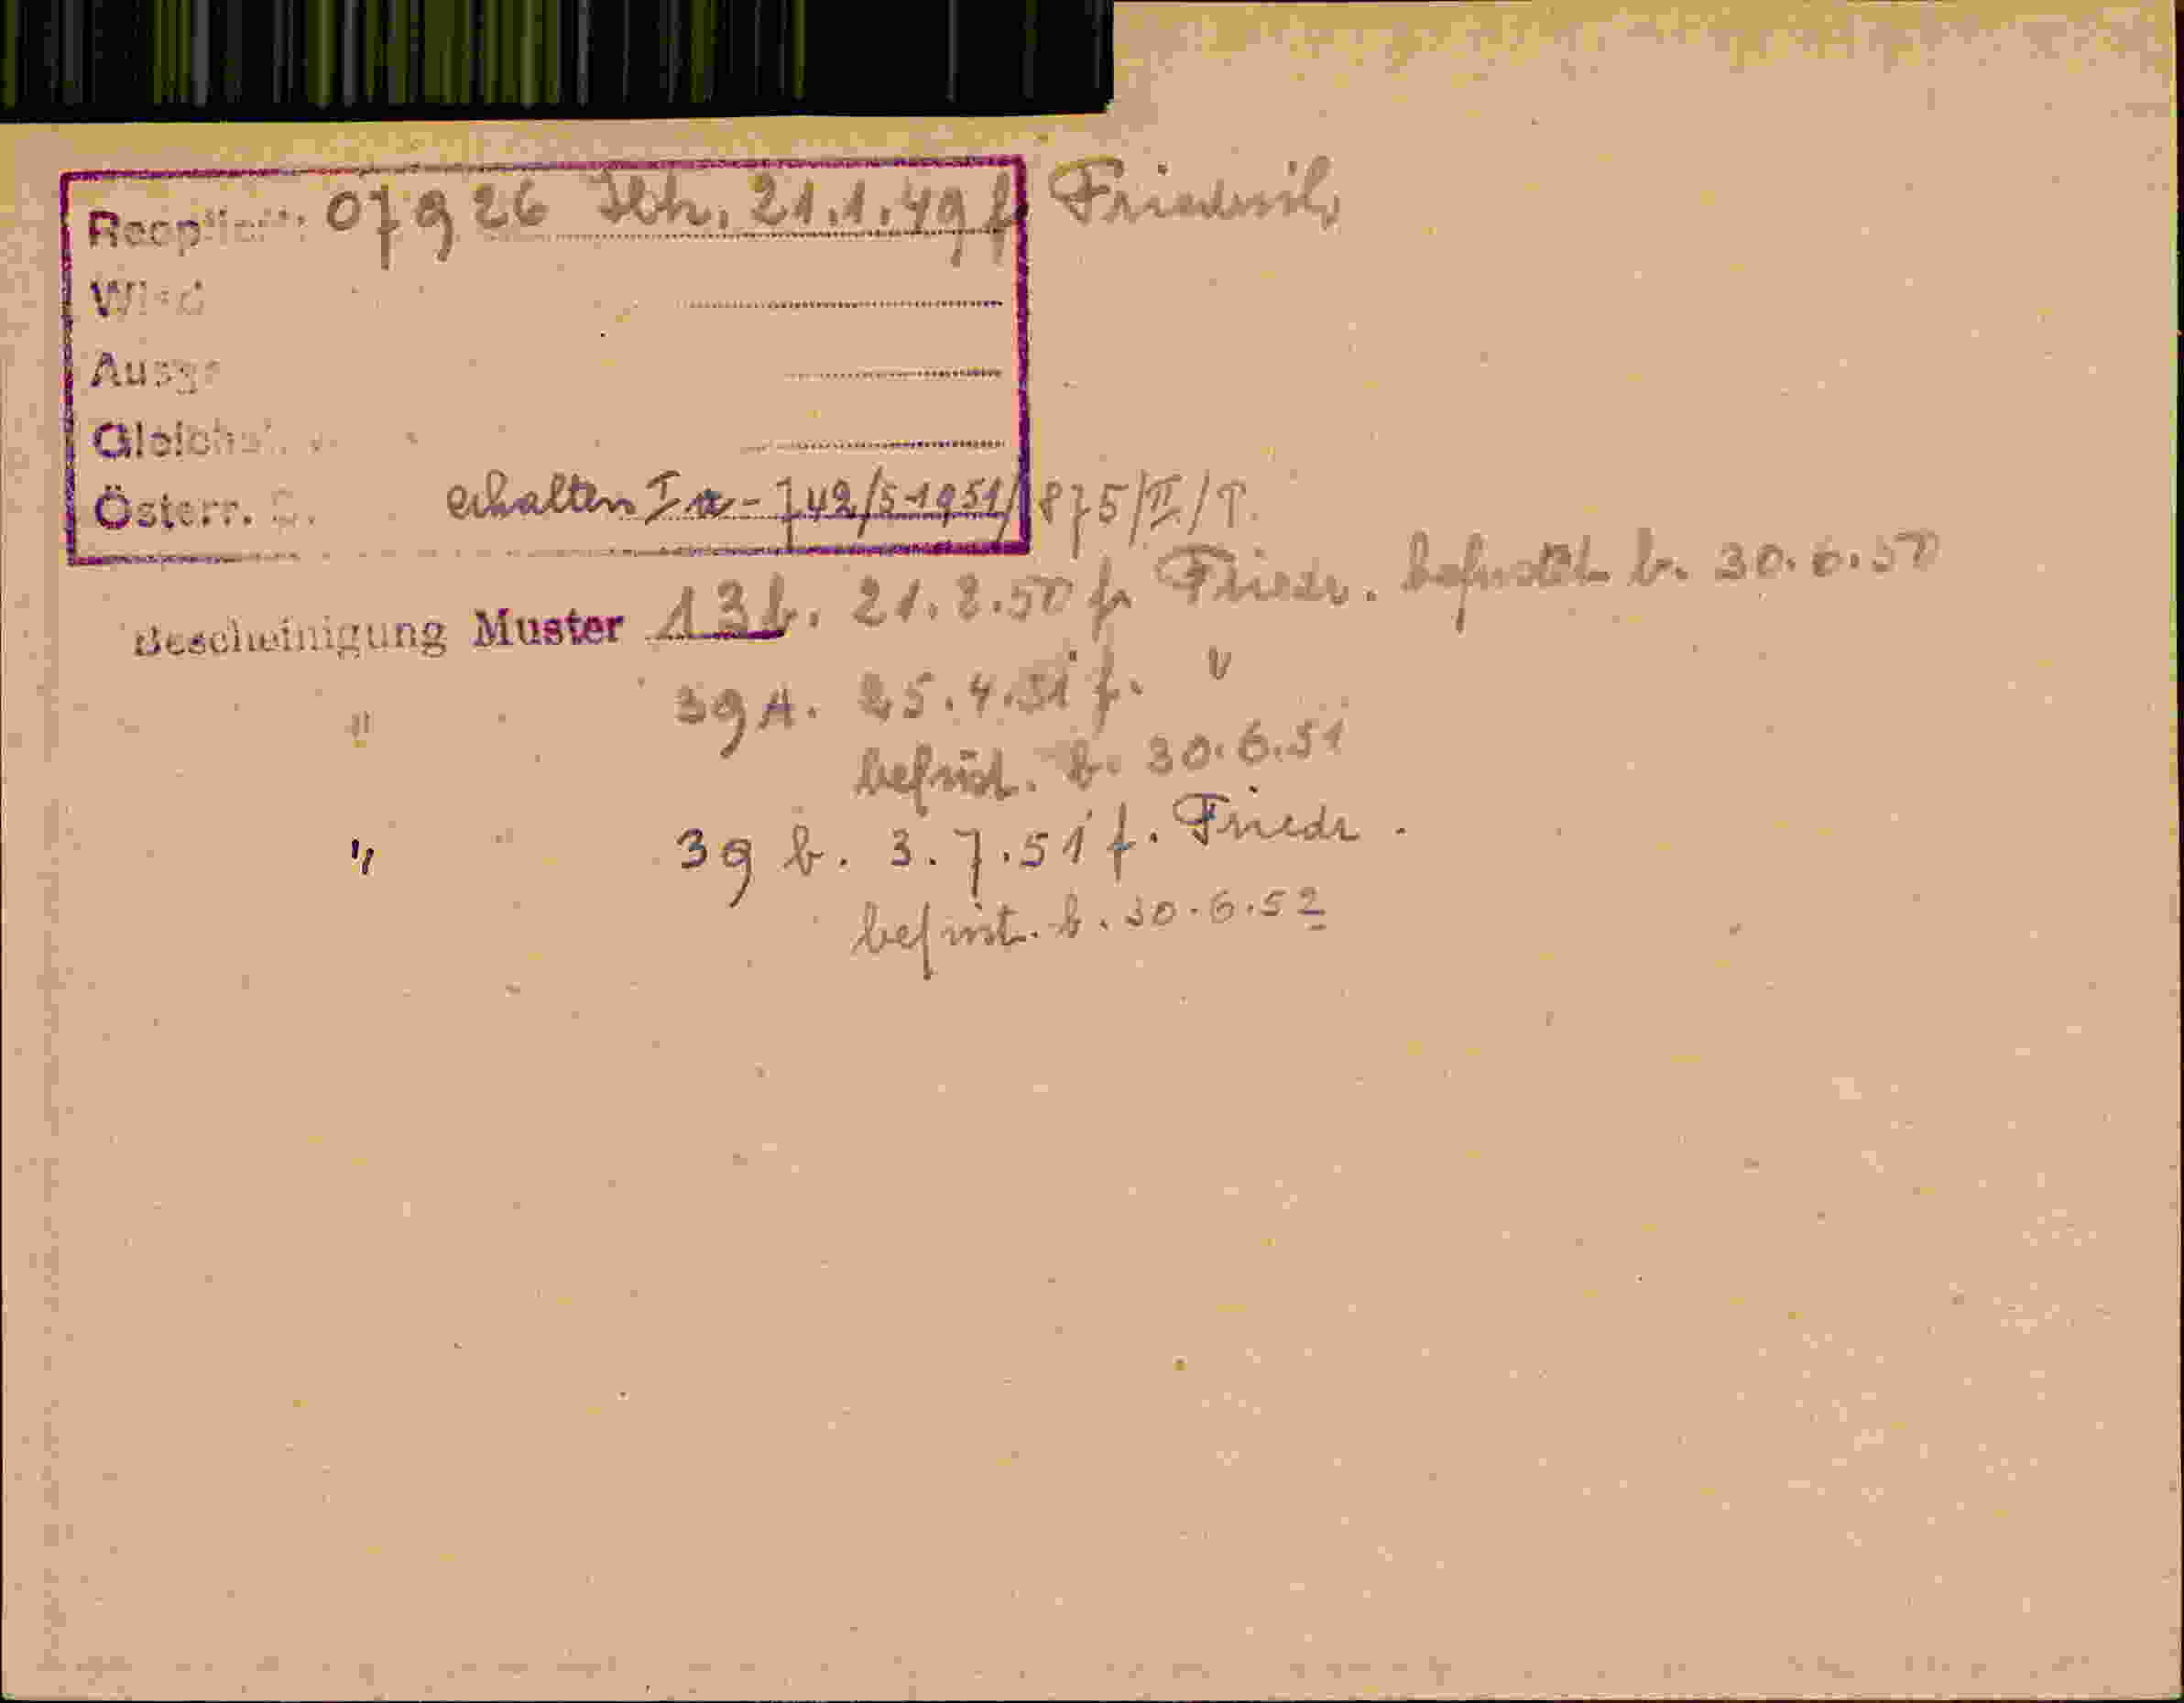 07926 21.1.49 f Friedrich
Österr. erhalten I a - 742/5-1951/875/II/T.
Bescheinigung Muster 13b. 21.2.50 f. Friedr. befristet b. 30.6.50
" 39A. 25.4.51 f. "
befrist. b. 30.6.51
" 39 b. 3.7.51 f. Friedr.
befrist. b. 30.6.52